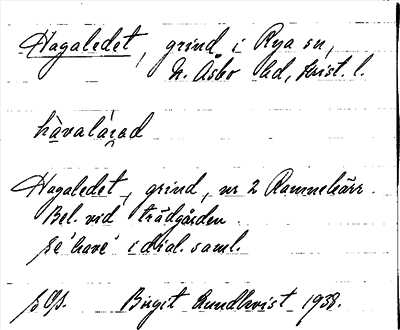 Hagaledet, grind i Rya sn,
N. Åsbo hd, Krist. l.
Hagaledet, grind, nr 2 Rammekärr.
Bel. vid trädgården
se 'have' i dial. saml.
Birgit Rundkvist 1938.